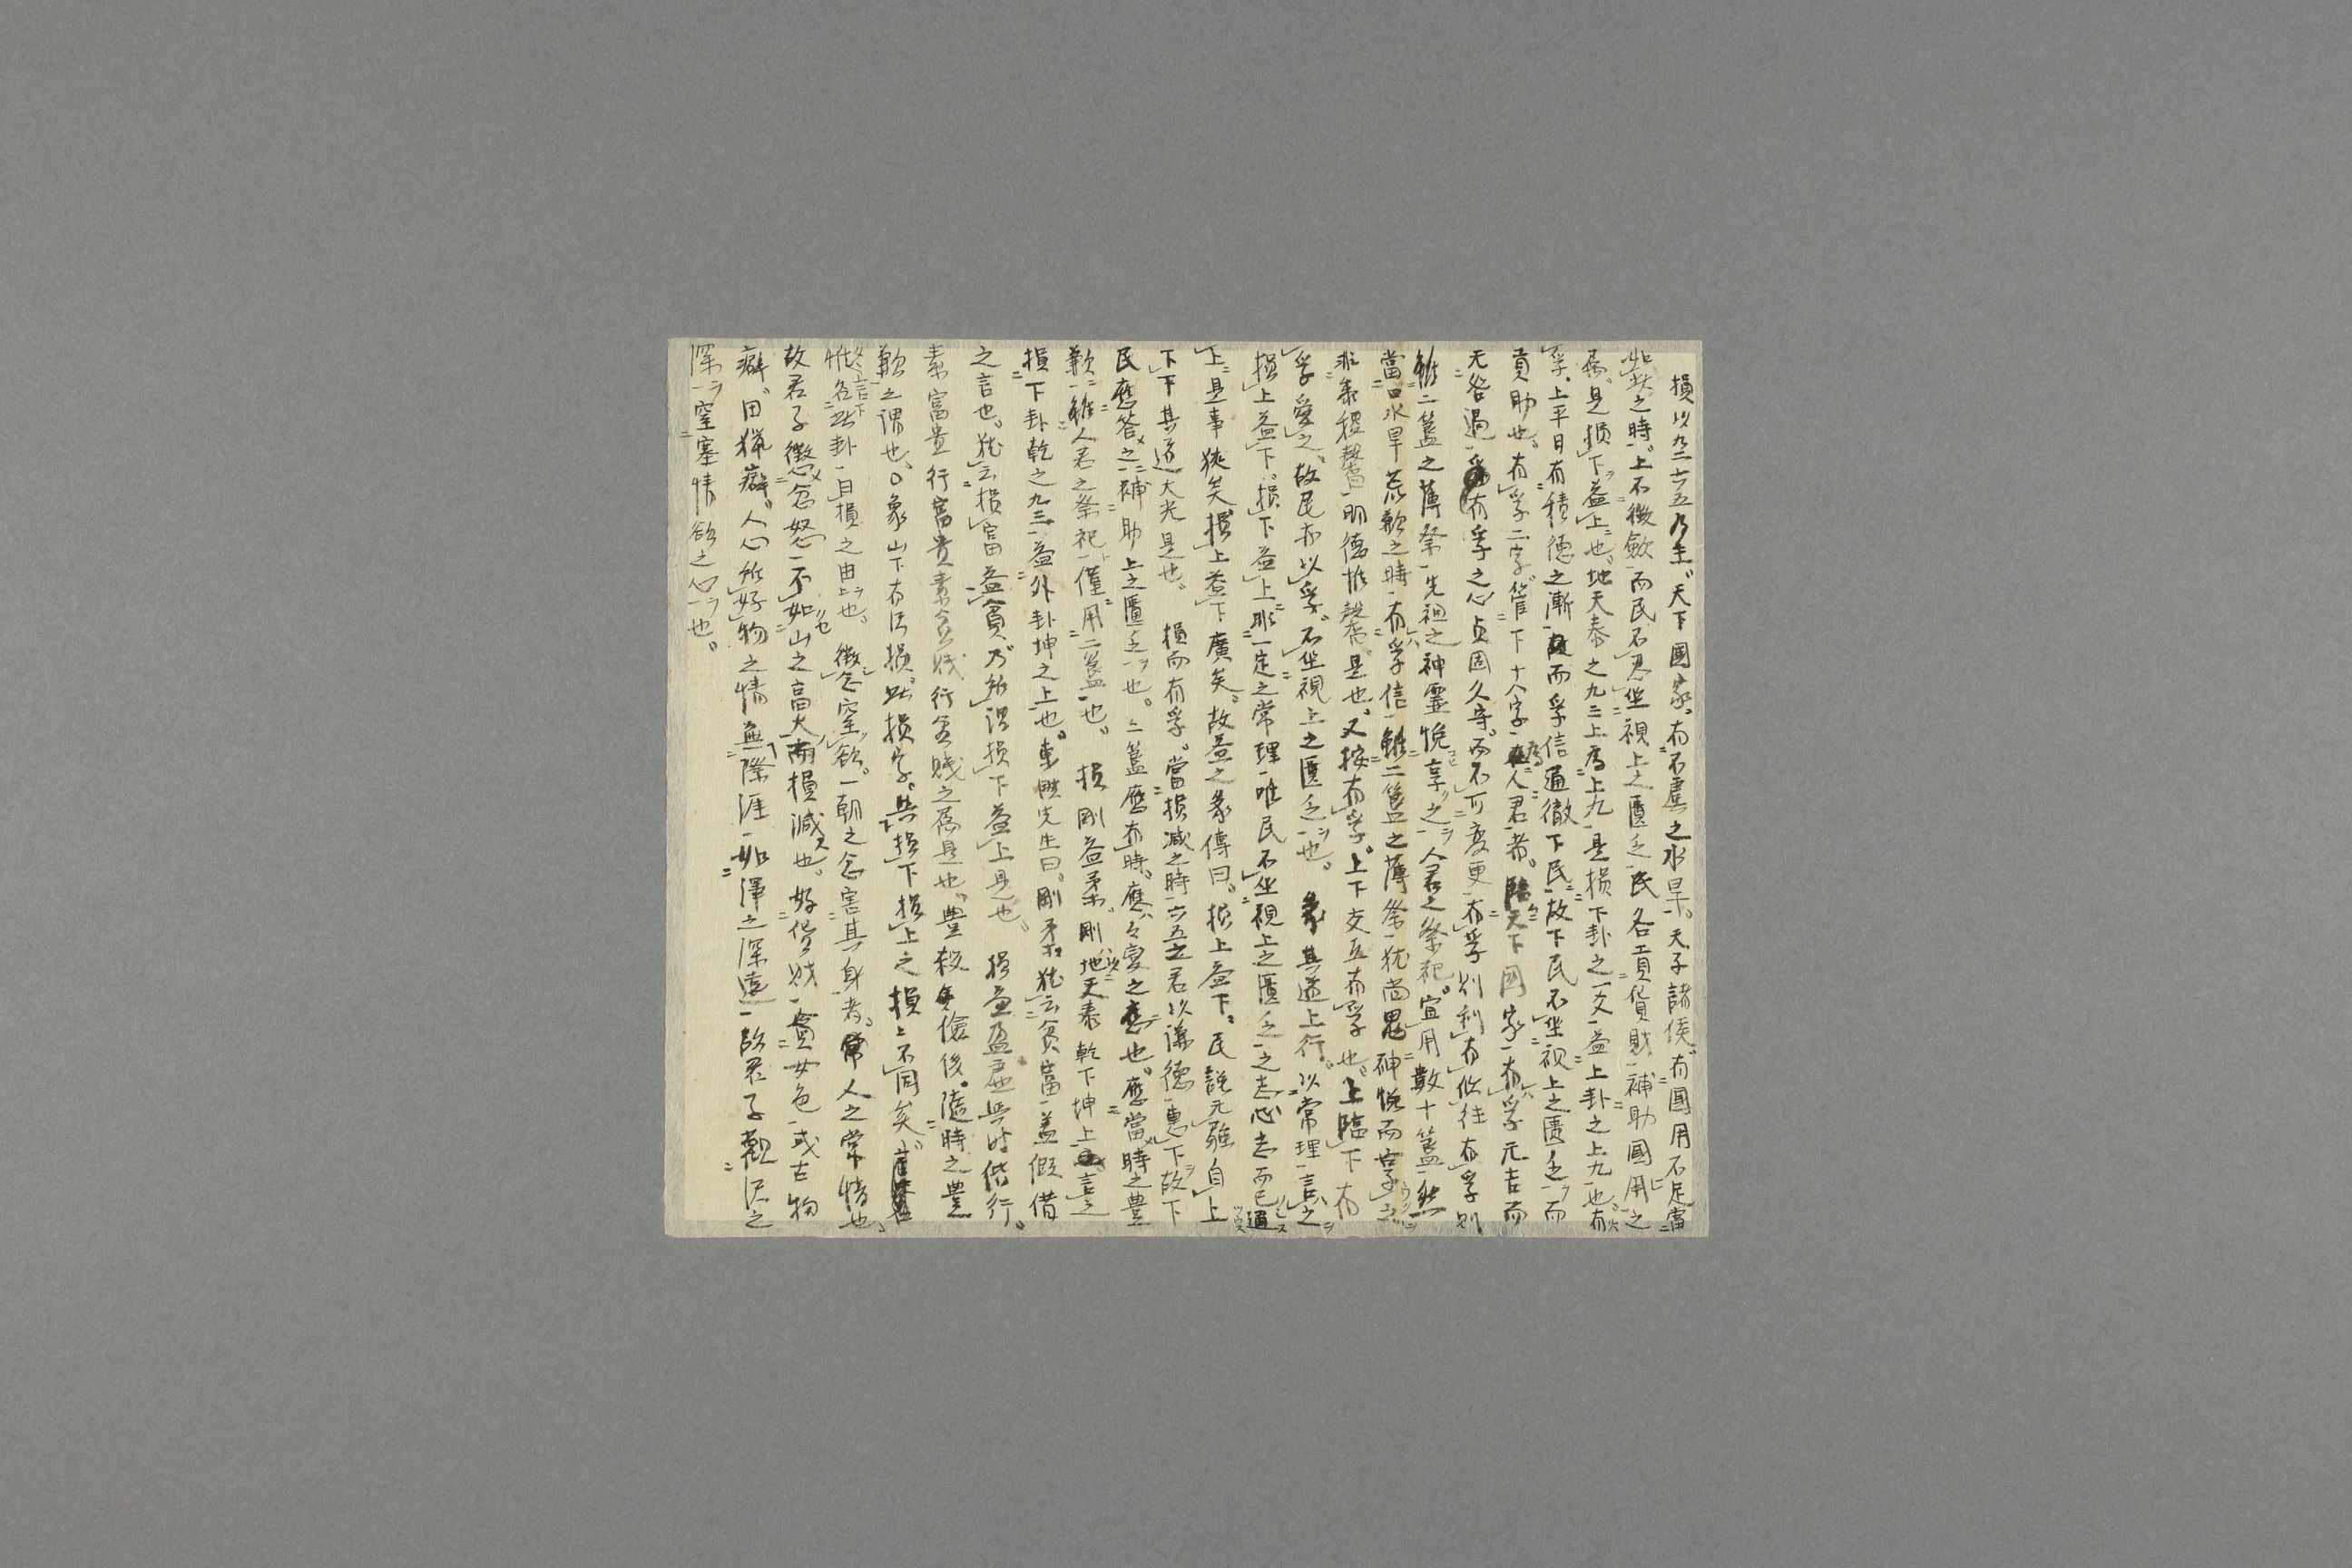 損以九二六五乃主。天下國家。有不虞之水旱。天子諸侯。有國用不足。當
如此之時。上不徴斂而民不忍坐視上之匱乏。民各貢貨財補助國用之
爲。是損下益上也。地天泰之九三上爲上九。是損下卦之一爻益上卦之上九也。有
孚。上平日有積德之漸而孚信通徹下民。故下民不坐視上之匱乏而
貢助也。有孚二字。管下十八字。爲人君者。臨天下國家。有孚元吉而
无咎過。有孚之心貞固久守。而不可変更。有孚則利有攸往。有孚則
雖二簋之薄祭先祖之神靈悦享之。人君之祭祀。宜用數十簋。然
當口水旱荒歉之時。有孚信雖二簋之薄祭。猶尚鬼神悦而享之。
非黍稷馨。明德惟馨。是也。又按有孚。上下交互有孚也。上臨下有
孚愛之。故民亦以孚。不坐視上之匱乏也。 彖其道上行。以常理言之
損上益下。損下益上。非一定之常理。唯民不坐視上之匱乏之志心志而已
上。是事狹矣。損上益下廣矣。故益之彖傳曰。損上益下。民説无疆自上
下下其道大光是也。 損而有孚。當損減之時六五之君以謙德惠下。故下
民應答之補助上之匱乏也。 二簋應有時。應々変之應也。應當時之豊
歉。雖人君之祭祀僅用二簋也。 損剛益柔。剛地天泰乾下坤上言之
損下卦乾之九三益外卦坤之上也。東厓先生曰。剛柔猶云貧富。蓋假借
之言也。猶云損富益貧。乃所謂損下益上是也。 損益盈虚與時偕行。
素富貴行富貴素貧賤行貧賤之爲是也。豊殺奢儉後。隨時之豊
歉之謂也。○象山下有沢損。此損字。與損下損上之損上不同矣。
此卦自損之由也。 徴忿窒欲。一朝之忿害其身者。常人之常情也。
故君子徴忿怒不如山之高大而損減也。好貨財賣女色或古物
癖。田猟癖。人心所好物之情無際涯如澤之深遠。故君子觀沢之
深窒塞情欲之心也。